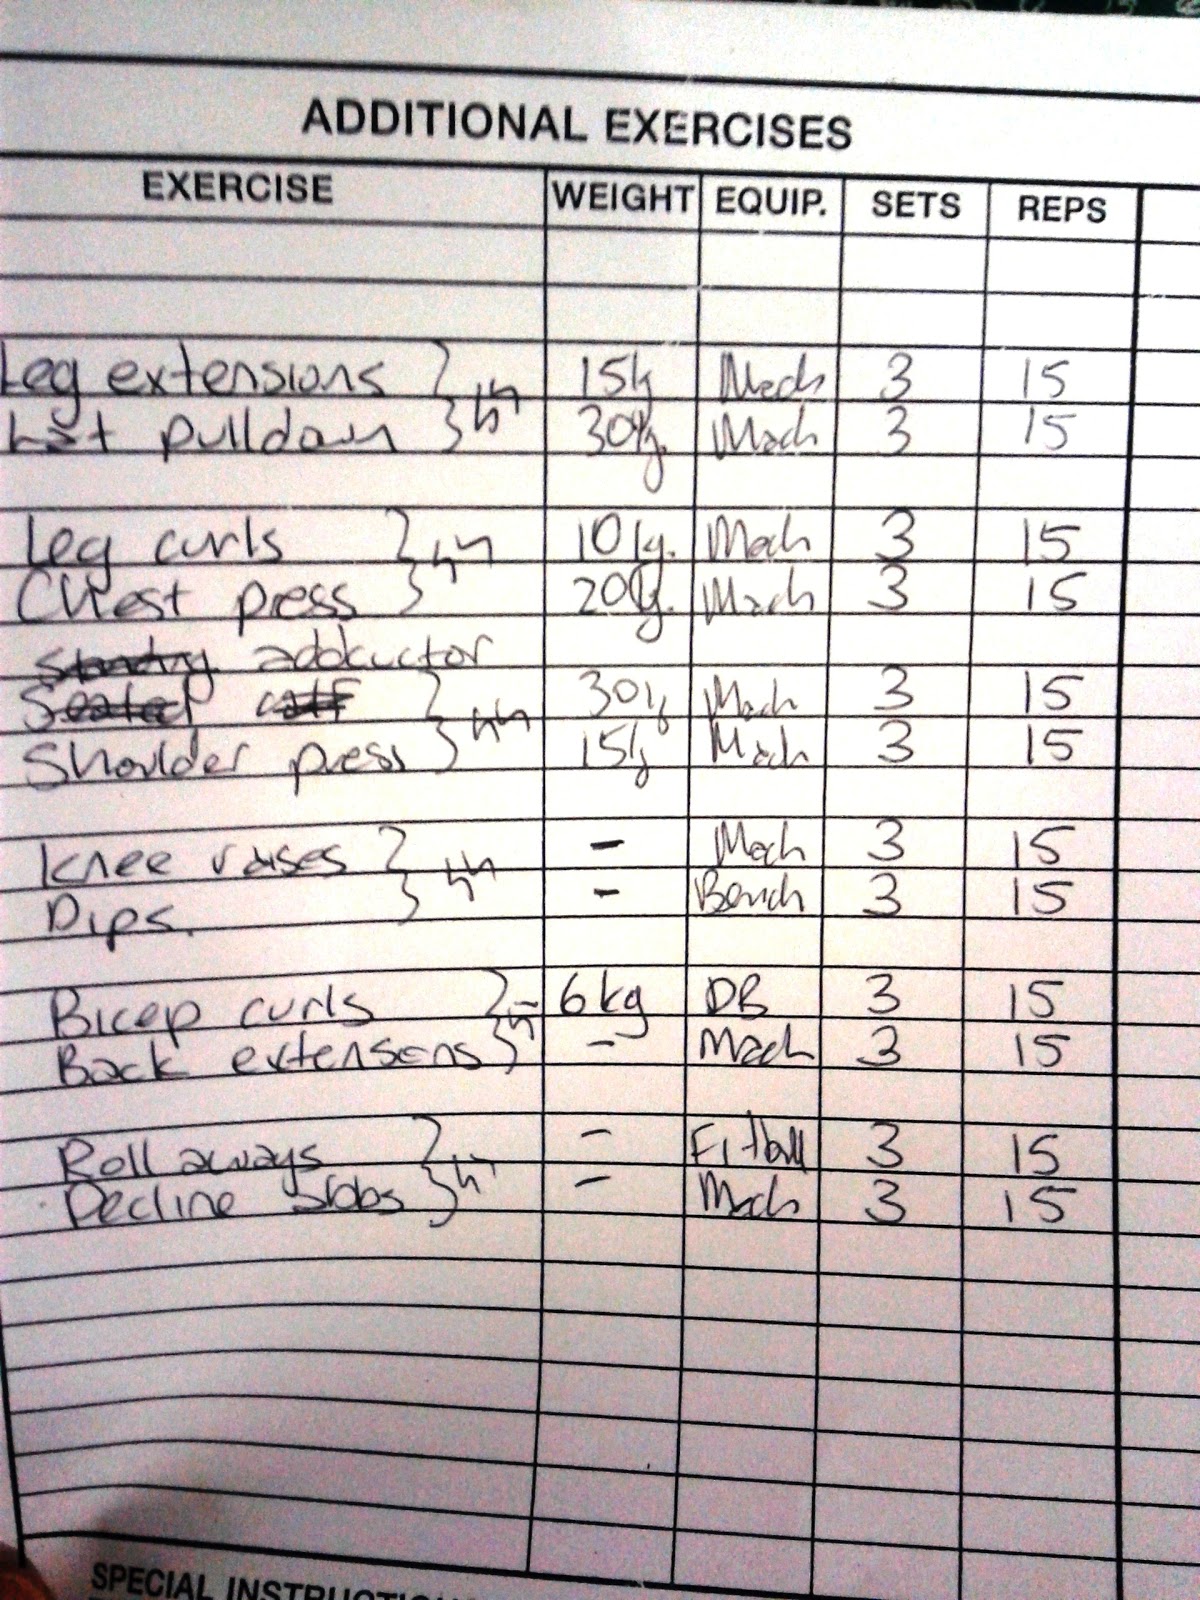 ADDITIONAL EXERCISES
EXERCISE WEIGHT EQUIP. SETS REPS
Leg extensions 15kg Mach 3 15
Lat pulldown 30kg. Mach 3 15
Leg curls 10kg. Mach 3 15
Chest press 20kg. Mach 3 15
Standing adductor
Seated calf 30kg Mach 3 15
Shoulder press 15kg Mach 3 15
Knee raises - Mach 3 15
Dips. - Bench 3 15
Bicep curls 6kg DB 3 15
Back extensens - Mach 3 15
Roll aways - Fitball 3 15
Decline - Mach 3 15
SPECIAL